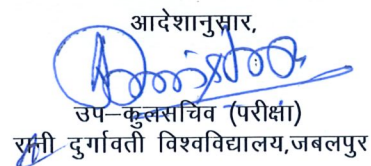 आदेशानुसार,
उप–कुलसचिव (परीक्षा)
रानी दुर्गावती विश्वविद्यालय,जबलपुर